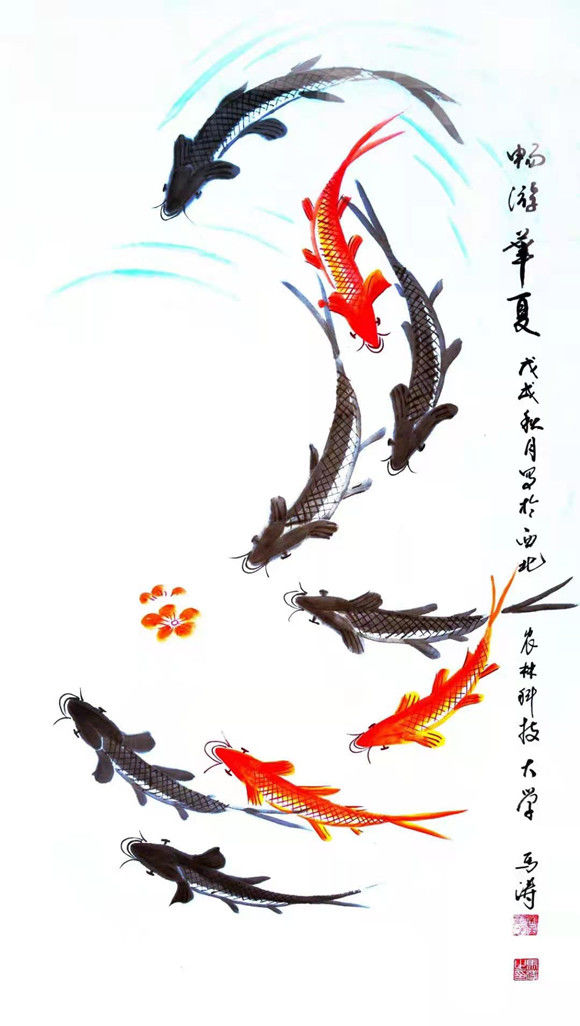 畅游華夏 戊戌秋月写于西北农林科技大学 马涛